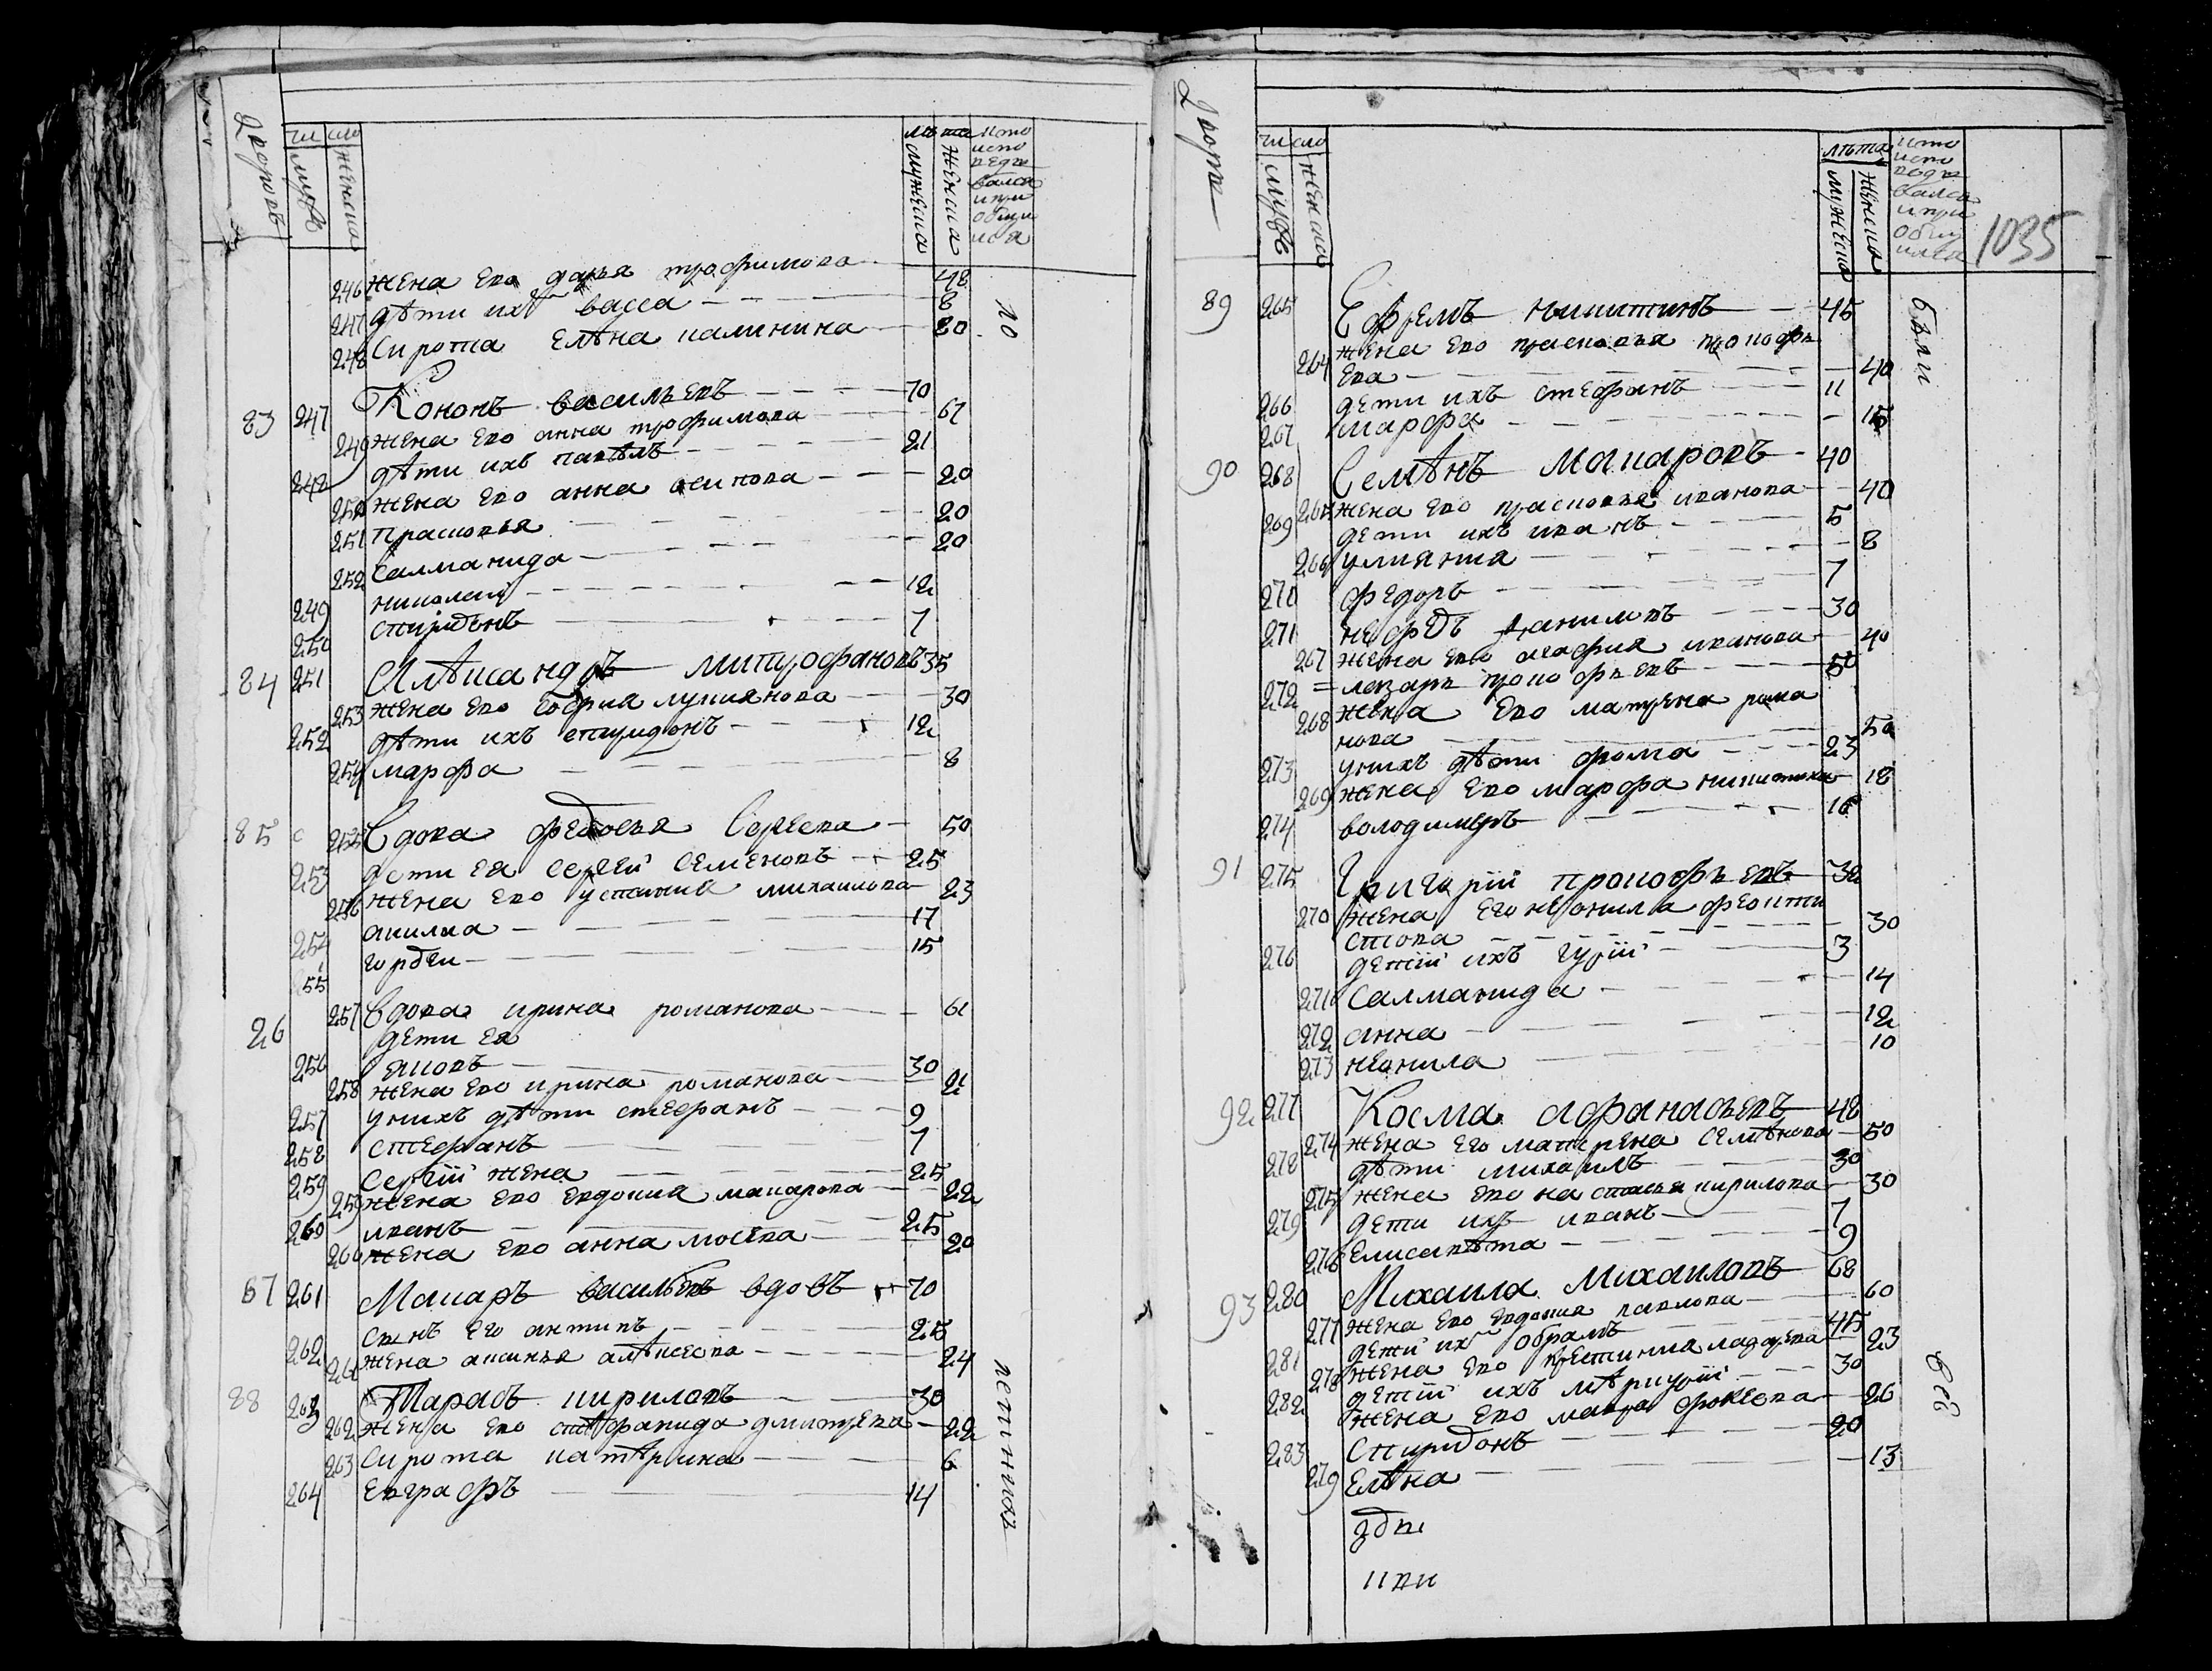 Дворовъ
чи сло
мужеска
женска
лѣта
мужеска
женска
кто
испо
веды
вался
и при
общи
лся
246 жена ево дарья трофимова 48
247 дѣти ихъ васса 8
248 Сирота Елѣна калинина 80
83 247 Кононъ васильевъ 70
249 жена ево анна трофимова 67
248 дѣти ихъ павѣлъ 21
250 жена ево анна осипова 20
251 прасковья 20
252 Салманида 20
249 николай 12
250 спиридонъ 7
84 251 Алѣксандръ митрофановъ 35
253 жена ево София лукиянова 30
252 дѣти ихъ спиридонъ 12
254 марфа 8
85 255 вдова федосья Сергеева 50
253 дети ея Сергей Семеновъ 25
256 жена ево устиния михаилова 23
254 акилла 17
255 гордеи 15
26 257 вдова ирина романова 61
дети ея
256 яковъ 30
258 жена ево ирина романова 21
257 унихъ дѣти стефанъ 9
258 стефанъ 7
259 Сергій жена 25
259 жена ево евдокия макарова 22
260 иванъ 25
260 жена ево анна мосеева 20
87 261 Макаръ васильевъ вдовъ 70
262 сынъ его антипъ 25
261 жена аксинья алѣксеева 24
88 263 Тарасъ кириловъ 30
262 жена ево стѣфанида дмитрева 22
263 Сирота катѣрина 6
264 Евграфъ 14
по
Дворы
чи сло
мужеска
женска
лѣта
мужеска
женска
кто
испо
веды
вался
и при
общи
лся
1035
89 265 Ефремъ никитинъ 45
264 жена ево прасковья прокофь
ева 40
266 дети ихъ стефанъ 11
267 марфа 15
90 268 Семѣнъ Макаровъ 40
265 жена ево прасковья иванова 40
269 дети ихъ иванъ 5
266 улиянна 8
270 федоръ 7
271 нефедъ даниловъ 30
267 жена ево агафия иванова 40
272 лазарь прокофьевъ 50
268 жена ево матрена рома
нова 50
273 унихъ дѣти фома 23
269 жена ево марфа никитина 18
274 володимеръ 16
91 275 Григорій прокофьевъ 32
270 жена его неонила феокти
стова 30
276 детіи ихъ гурій 3
271 Салманида 14
272 анна 12
273 неонила 10
92 277 Косма афанасьевъ 48
274 жена его матрена Семѣнова 50
278 дѣти михаилъ 30
275 жена ево настасья кирилова 30
279 дети ихъ иванъ 7
276 Елисавѣта 9
93 280 Михаила Михаиловъ 68
277 жена ево евдокия павлова 60
281 дети ихъ обрамъ 45
278 жена ево 23
282 детіи ихъ 30
жена ево мавра фокеева 26
283 Спиридонъ 20
279 Елѣна 13
были
всѣ